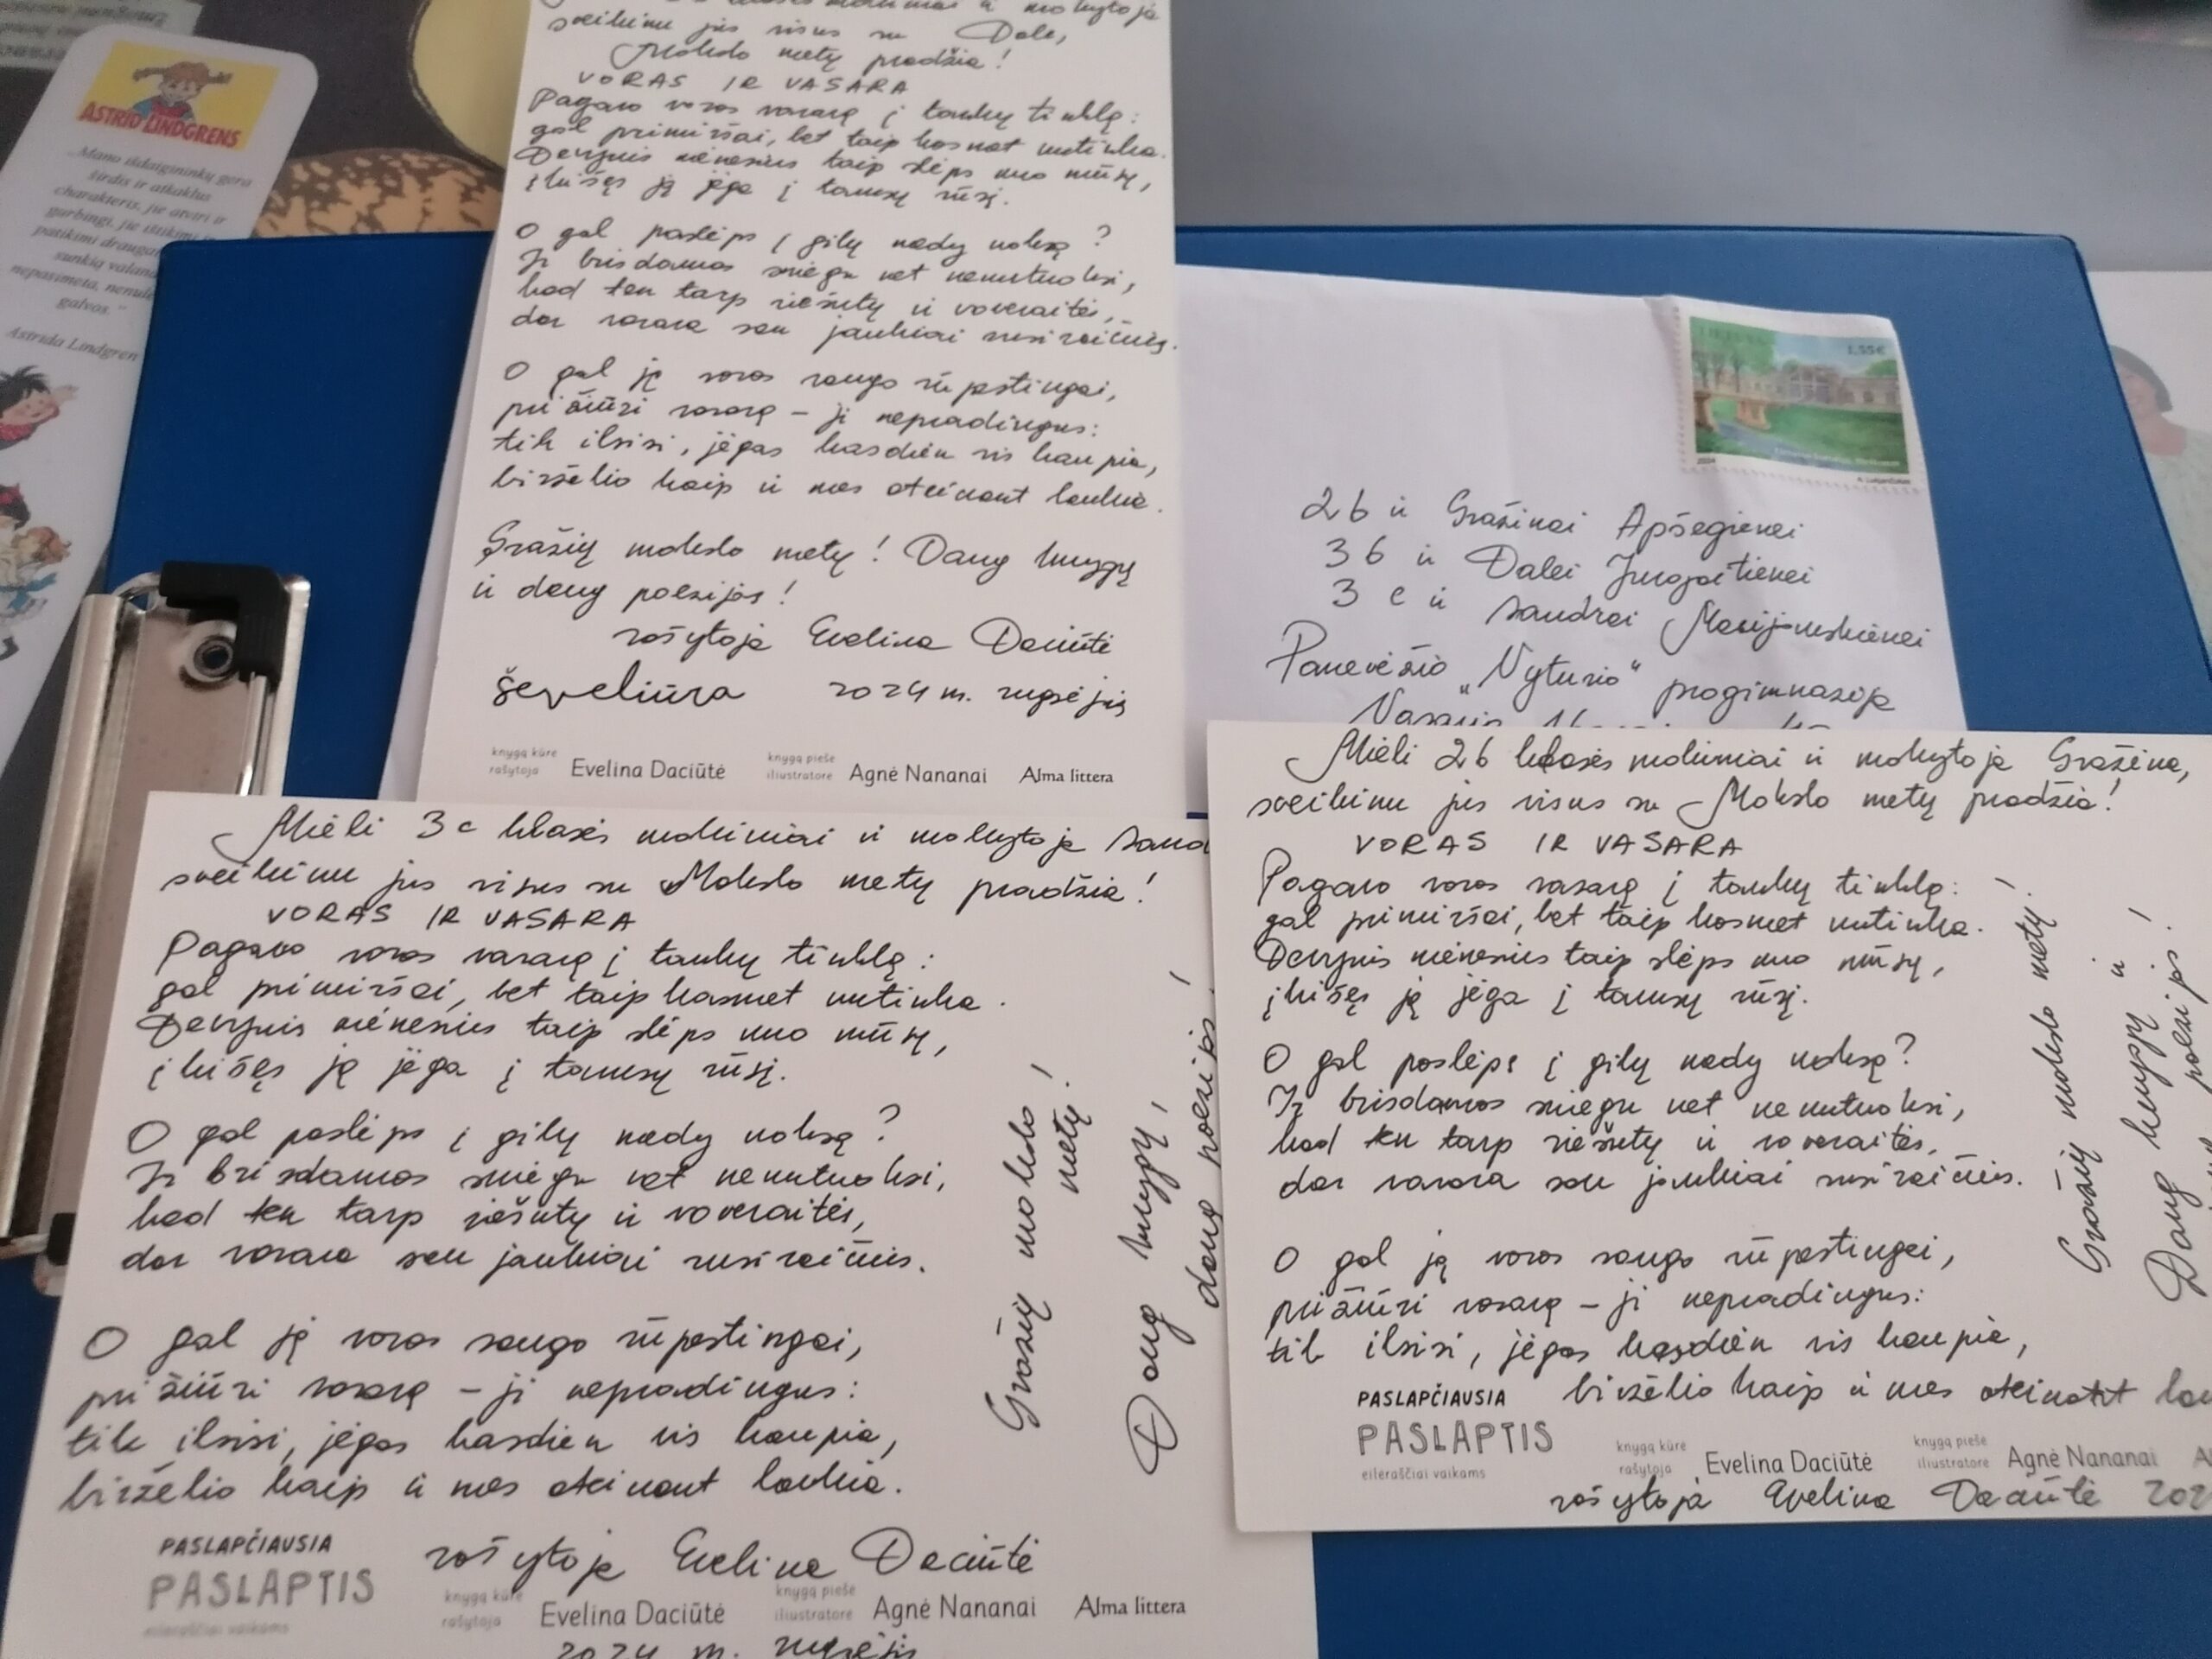 ASTRID LINDGRENS
„Mano išdaigininkų gera
širdis ir atkaklus
charakteris, jie atviri ir
garbingi, jie ištikimi ir
patikimi draugai
sunkią valandą
nepasimeta, nenuleidžia
galvos."
Astrida Lindgren
klasės mokiniai ir mokytoja
sveikinu jus visus su Dale,
Mokslo metų pradžia!
VORAS IR VASARA
Pagavo voras vasarą į tankų tinklą:
gal primiršai, bet taip kasmet nutinka.
Devynis mėnesius taip slėps nuo mūsų,
įkišęs ją jėga į tamsų rūsį.
O gal paslėps į gilų medų uoksą?
Ir brisdamas sniegu net nenutuoksi,
kad ten tarp riešutų ir voveraitės,
dar vasara sau jaukiai susiraičius.
O gal ją voras saugo rūpestingai,
prižiūri vasarą – ji nepradingus:
tik ilsisi, jėgas kasdien vis kaupia,
birželio kaip ir mes ateinant laukia.
Gražių mokslo metų! Daug knygų
ir daug poezijos!
rašytoja Evelina Daciūtė
ševeliūra 2024 m. rugsėjis
knygą kūrė
rašytoja Evelina Daciūtė
knygą piešė
iliustratorė Agnė Nananai
Alma littera
1,55€
2024
2b ir Gražinai Apšegienei
3b ir Dalei Jurgaitienei
3c ir Sandrai Marijauskienei
Panevėžio „Vyturio“ progimnazija
Mieli 3c klasės mokiniai ir mokytoja
sveikinu jus visus su Mokslo metų pradžia!
VORAS IR VASARA
Pagavo voras vasarą į tankų tinklą:
gal primiršai, bet taip kasmet nutinka.
Devynis mėnesius taip slėps nuo mūsų,
įkišęs ją jėga į tamsų rūsį.
O gal paslėps į gilų medų uoksą?
Ir brisdamas sniegu net nenutuoksi,
kad ten tarp riešutų ir voveraitės,
dar vasara sau jaukiai susiraičius.
O gal ją voras saugo rūpestingai,
prižiūri vasarą – ji nepradingus:
tik ilsisi, jėgas kasdien vis kaupia,
birželio kaip ir mes ateinant laukia.
Gražių mokslo
metų!
Daug knygų!
daug poezijos!
PASLAPČIAUSIA
PASLAPTIS
eilėraščiai vaikams
rašytoja Evelina Daciūtė
knygą kūrė
rašytoja Evelina Daciūtė
knygą piešė
iliustratorė Agnė Nananai
Alma littera
2024 m. rugsėjis
Mieli 2b klasės mokiniai ir mokytoja Gražina,
sveikinu jus visus su Mokslo metų pradžia!
VORAS IR VASARA
Pagavo voras vasarą į tankų tinklą:
gal primiršai, bet taip kasmet nutinka.
Devynis mėnesius taip slėps nuo mūsų,
įkišęs ją jėga į tamsų rūsį.
O gal paslėps į gilų medų uoksą?
Ir brisdamas sniegu net nenutuoksi,
kad ten tarp riešutų ir voveraitės,
dar vasara sau jaukiai susiraičius.
O gal ją voras saugo rūpestingai,
prižiūri vasarą – ji nepradingus:
tik ilsisi, jėgas kasdien vis kaupia,
birželio kaip ir mes ateinant
Gražių mokslo metų!
Daug knygų ir
poezijos!
PASLAPČIAUSIA
PASLAPTIS
eilėraščiai vaikams
knygą kūrė
rašytoja Evelina Daciūtė
knygą piešė
iliustratorė Agnė Nananai
rašytoja Evelina Daciūtė